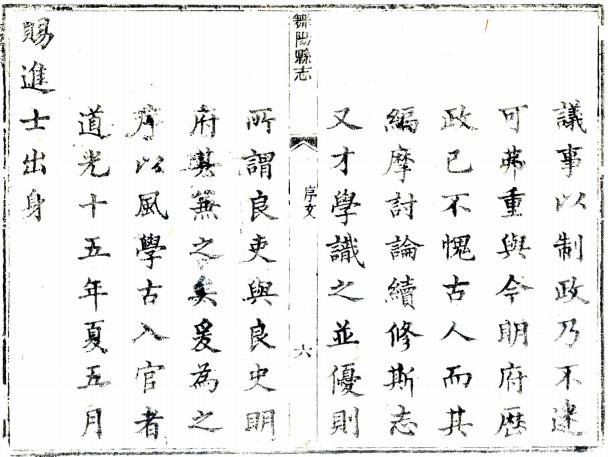 議事以制政乃不迷
可弗重與今明府歴
政已不愧古人而其
編摩討論續修斯志
又才學識之並優則
舞陽縣志
序文
六
所謂良吏與良史明
府其兼之矣爰為之
序以風學古入官者
道光十五年夏五月
賜進士出身